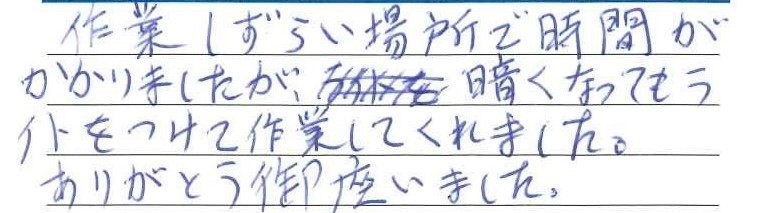 作業しずらい場所で時間が
かかりましたが、暗くなってもラ
イトをつけて作業してくれました。
ありがとう御座いました。